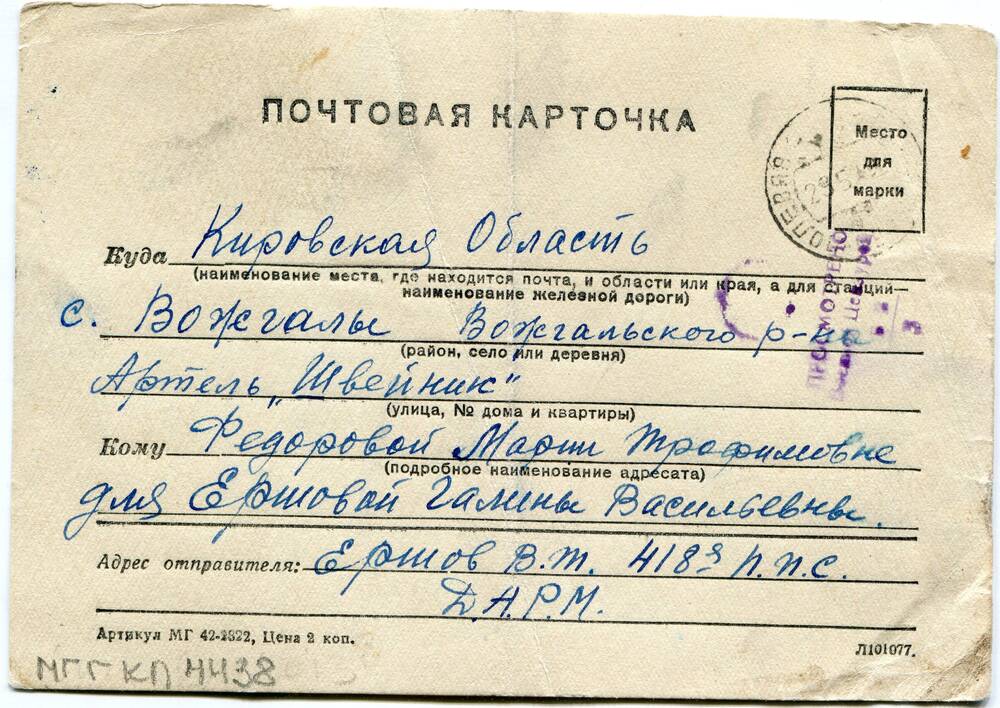 ПОЧТОВАЯ КАРТОЧКА
Место
для
марки
Куда Кировская Область
(наименование места, где находится почта, и области или края, а для станций—
наименование железной дороги)
с. Вожгалы Вожгальского р-на
(район, село или деревня)
Артель „Швейник"
(улица, № дома и квартиры)
Кому Федоровой Марии Трофимовне
(подробное наименование адресата)
для Ершовой Галины Васильевны.
Адрес отправителя: Ершов В.Т. 418й П.П.С.
Д.А.Р.М.
Артикул МГ 42-2822, Цена 2 коп.
Л101077.
МГГ КП 4438
ПРОСМОТРЕНО